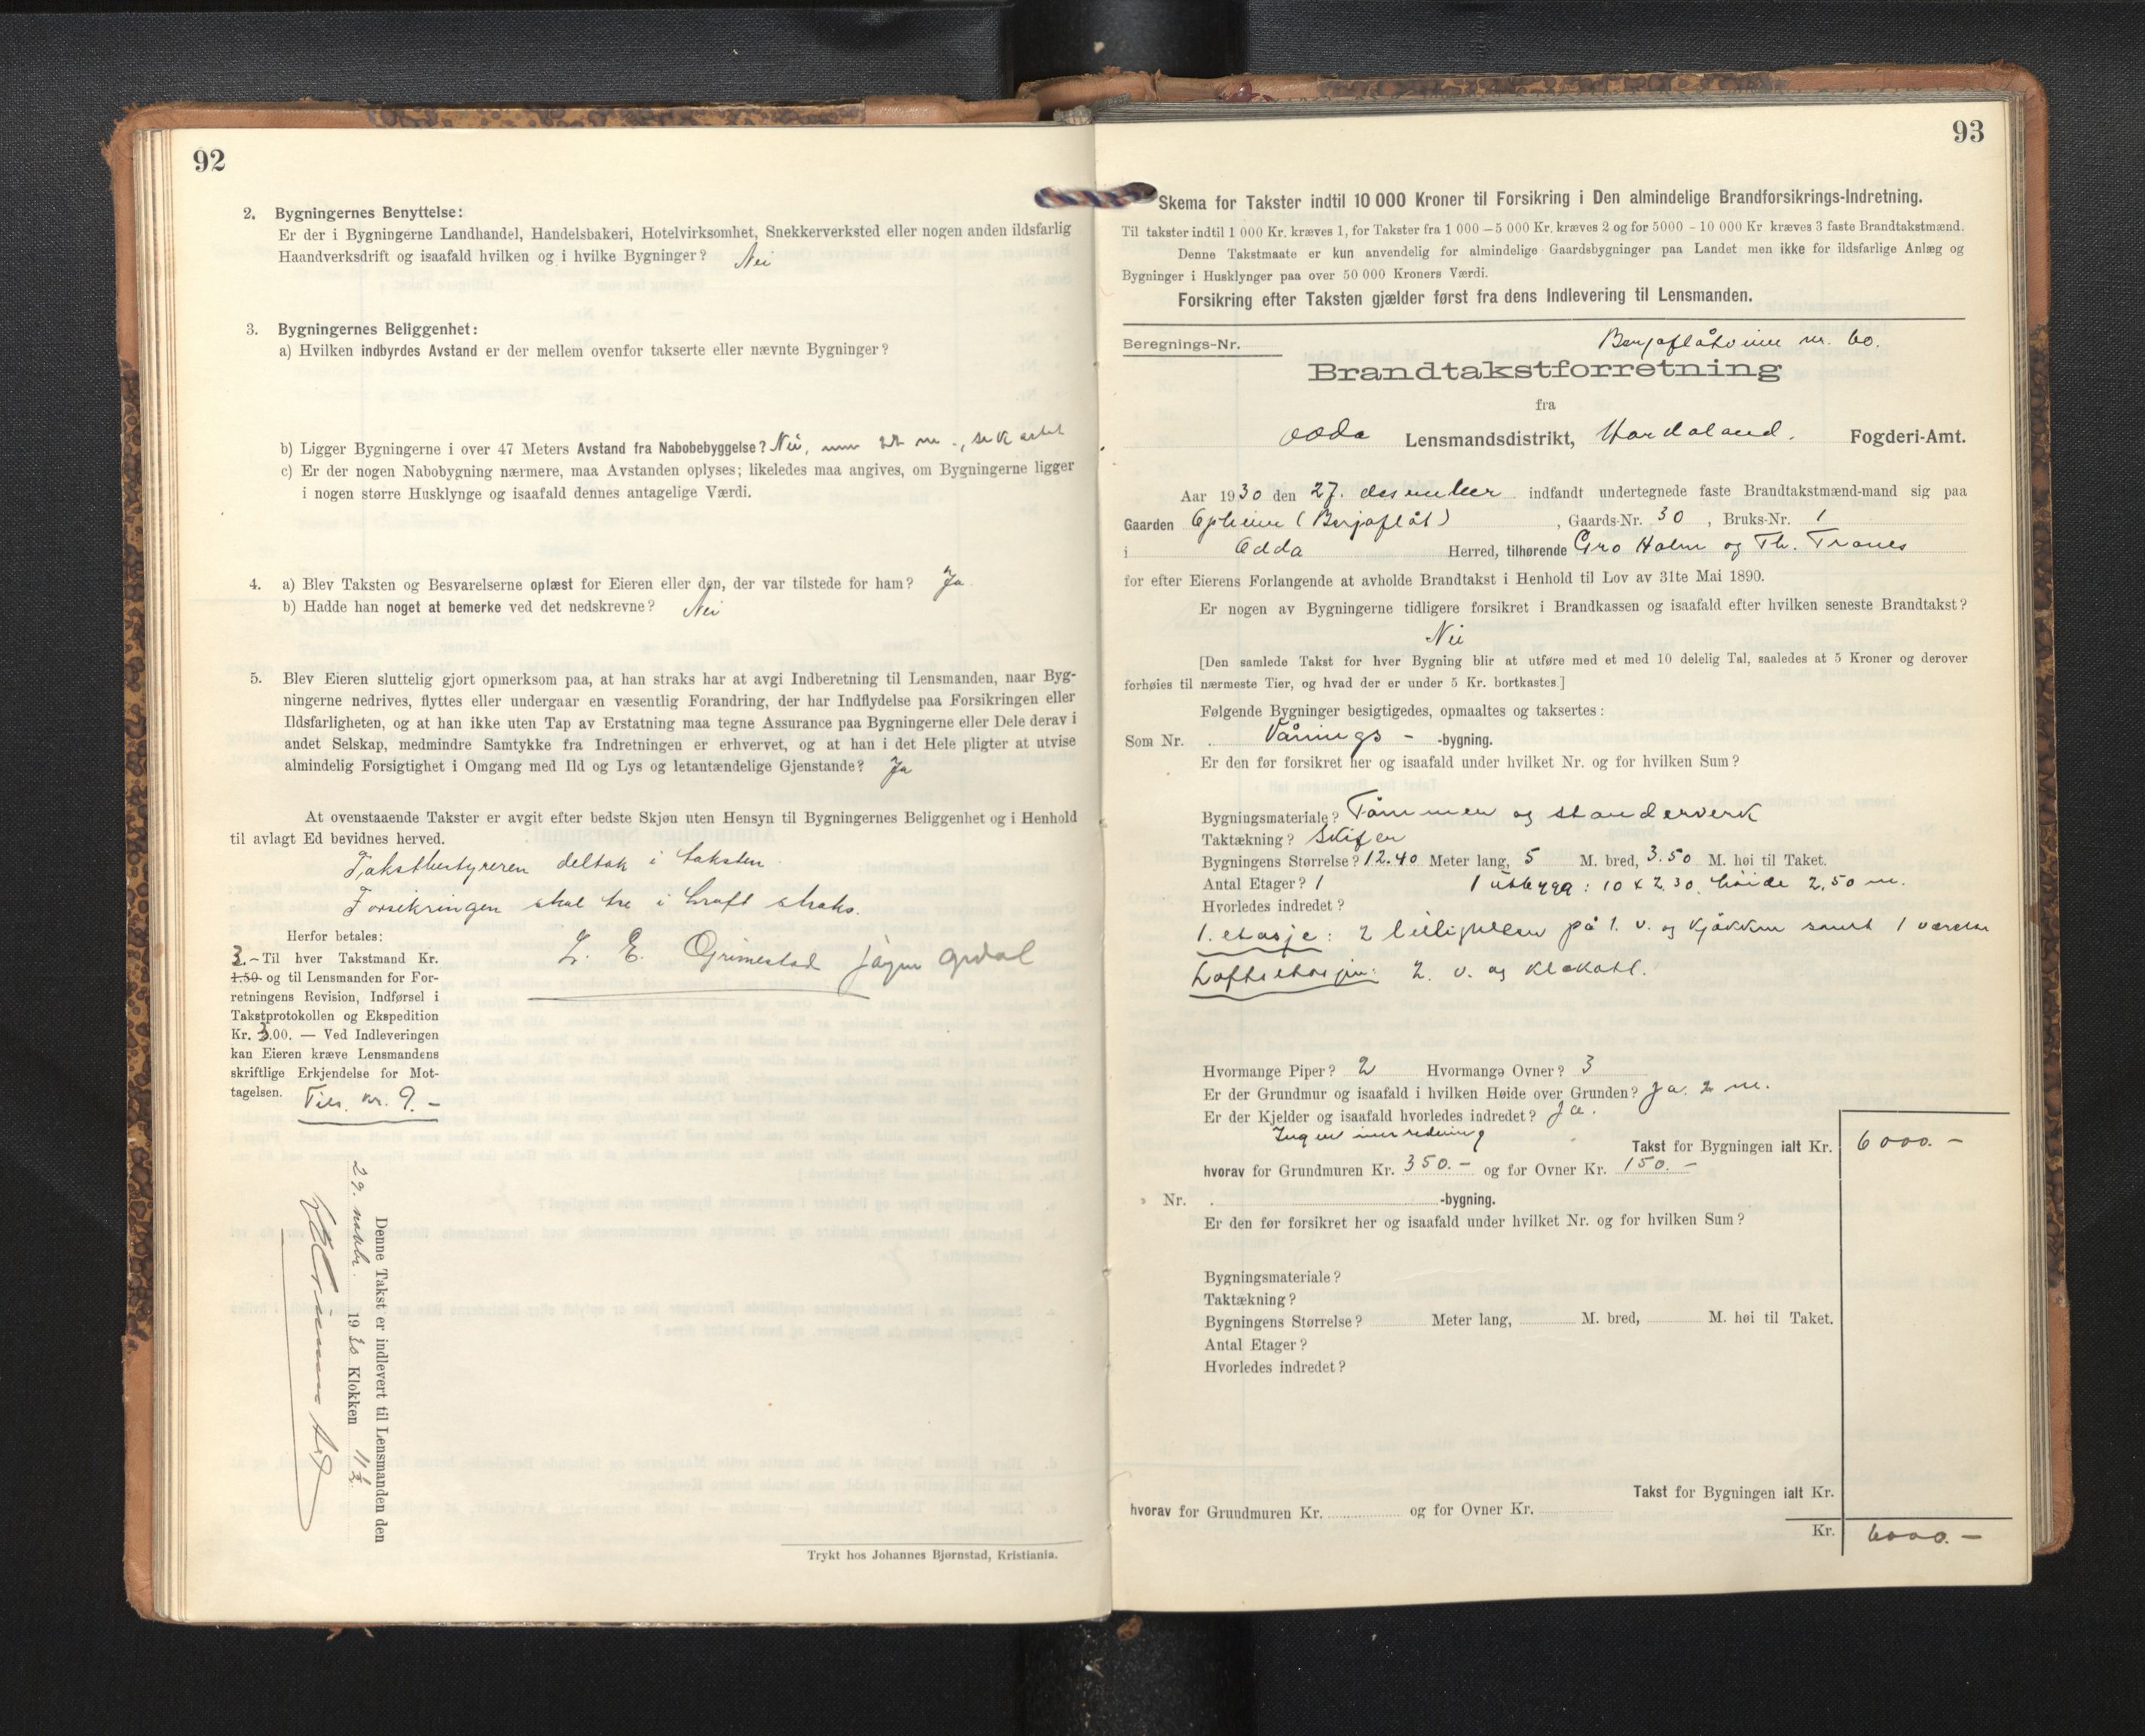 92
2. Bygningernes Benyttelse:
Er der i Bygningerne Landhandel, Handelsbakeri, Hotelvirksomhet, Snekkerverksted eller nogen anden ildsfarlig
Haandverksdrift og isaafald hvilken og i hvilke Bygninger? Nei
3. Bygningernes Beliggenhet:
a) Hvilken indbyrdes Avstand er der mellem ovenfor takserte eller nævnte Bygninger?
b) Ligger Bygningerne i over 47 Meters Avstand fra Nabobebyggelse? Nei,
c) Er der nogen Nabobygning nærmere, maa Avstanden oplyses; likeledes maa angives, om Bygningerne ligger
i nogen større Husklynge og isaafald dennes antagelige Værdi.
4. a) Blev Taksten og Besvarelserne oplæst for Eieren eller den, der var tilstede for ham? Ja
b) Hadde han noget at bemerke ved det nedskrevne? Nei
5. Blev Eieren sluttelig gjort opmerksom paa, at han straks har at avgi Indberetning til Lensmanden, naar Byg-
ningerne nedrives, flyttes eller undergaar en væsentlig Forandring, der har Indflydelse paa Forsikringen eller
Ildsfarligheten, og at han ikke uten Tap av Erstatning maa tegne Assurance paa Bygningerne eller Dele derav i
andet Selskap, medmindre Samtykke fra Indretningen er erhvervet, og at han i det Hele pligter at utvise
almindelig Forsigtighet i Omgang med Ild og Lys og letantændelige Gjenstande? Ja
At ovenstaaende Takster er avgit efter bedste Skjøn uten Hensyn til Bygningernes Beliggenhet og i Henhold
til avlagt Ed bevidnes herved.
Takstbestyreren deltok i taksten
Forsikringen skal tre i kraft straks.
L. E. Grimestad
Herfor betales:
3.- Til hver Takstmand Kr.
1.50 og til Lensmanden for For-
retningens Revision, Indførsel i
Takstprotokollen og Ekspedition
Kr. 3.00. — Ved Indleveringen
kan Eieren kræve Lensmandens
skriftlige Erkjendelse for Mot-
tagelsen.
Tils. kr. 9.-
Denne Takst er indlevert til Lensmanden den
29. 1930 Klokken 11½
Trykt hos Johannes Bjørnstad, Kristiania.
93
Skema for Takster indtil 10 000 Kroner til Forsikring i Den almindelige Brandforsikrings-Indretning.
Til takster indtil 1 000 Kr. kræves 1, for Takster fra 1 000 — 5 000 Kr. kræves 2 og for 5000 - 10 000 Kr kræves 3 faste Brandtakstmænd.
Denne Takstmaate er kun anvendelig for almindelige Gaardsbygninger paa Landet men ikke for ildsfarlige Anlæg og
Bygninger i Husklynger paa over 50 000 Kroners Værdi.
Forsikring efter Taksten gjælder først fra dens Indlevering til Lensmanden.
Berjaflåtheim nr. 60.
Beregnings-Nr.
Brandtakstforretning
fra
Odda Lensmandsdistrikt, Hordaland. Fogderi-Amt.
Aar 1930 den 27. desember indfandt undertegnede faste Brandtakstmænd-mand sig paa
Gaarden Opheim (Berjaflåt), Gaards-Nr. 30, Bruks-Nr. 1
i Odda Herred, tilhørende Gro Holm og Th. Tranes
for efter Eierens Forlangende at avholde Brandtakst i Henhold til Lov av 31te Mai 1890.
Er nogen av Bygningerne tidligere forsikret i Brandkassen og isaafald efter hvilken seneste Brandtakst?
Nei
[Den samlede Takst for hver Bygning blir at utføre med et med 10 delelig Tal, saaledes at 5 Kroner og derover
forhøies til nærmeste Tier, og hvad der er under 5 Kr. bortkastes.]
Følgende Bygninger besigtigedes, opmaaltes og taksertes:
Som Nr. Vånings - -bygning.
Er den før forsikret her og isaafald under hvilket Nr. og for hvilken Sum?
Bygningsmateriale? Tømmer og standerverk
Taktækning? Skifer
Bygningens Størrelse? 12.40 Meter lang, 5 M. bred, 3.50 M. høi til Taket.
Antal Etager? 1 1 utbygg: 10 x 2.30, høide 2,50 m.
Hvorledes indredet?
1. etasje: 2 leiligheter på 1. v. og kjøkken samt 1 værelse
Loftsetasjen: 2. v. og klokott.
Hvormange Piper? 2 Hvormange Ovner? 3
Er der Grundmur og isaafald i hvilken Høide over Grunden? Ja. 2 m.
Er der Kjelder og isaafald hvorledes indredet? Ja.
Ingen innredning
Takst for Bygningen ialt Kr. 6000.-
hvorav for Grundmuren Kr. 350.- og for Ovner Kr. 150.-
» Nr. -bygning.
Er den før forsikret her og isaafald under hvilket Nr. og for hvilken Sum?
Bygningsmateriale?
Taktækning?
Bygningens Størrelse? Meter lang, M. bred, M. høi til Taket.
Antal Etager?
Hvorledes indredet?
Takst for Bygningen ialt Kr.
hvorav for Grundmuren Kr. og for Ovner Kr.
Kr. 6000.-